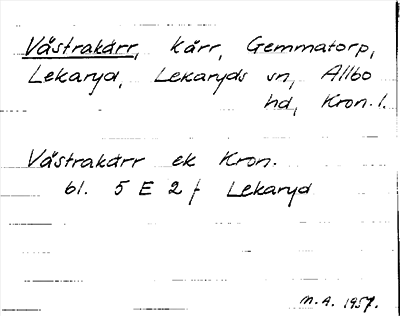 Västrakärr, kärr, Gemmatorp,
Lekaryd, Lekaryds sn, Allbo
hd, Kron. l.
Västrakärr ek Kron.
bl. 5 E 2 f Lekaryd
M.A. 1957.